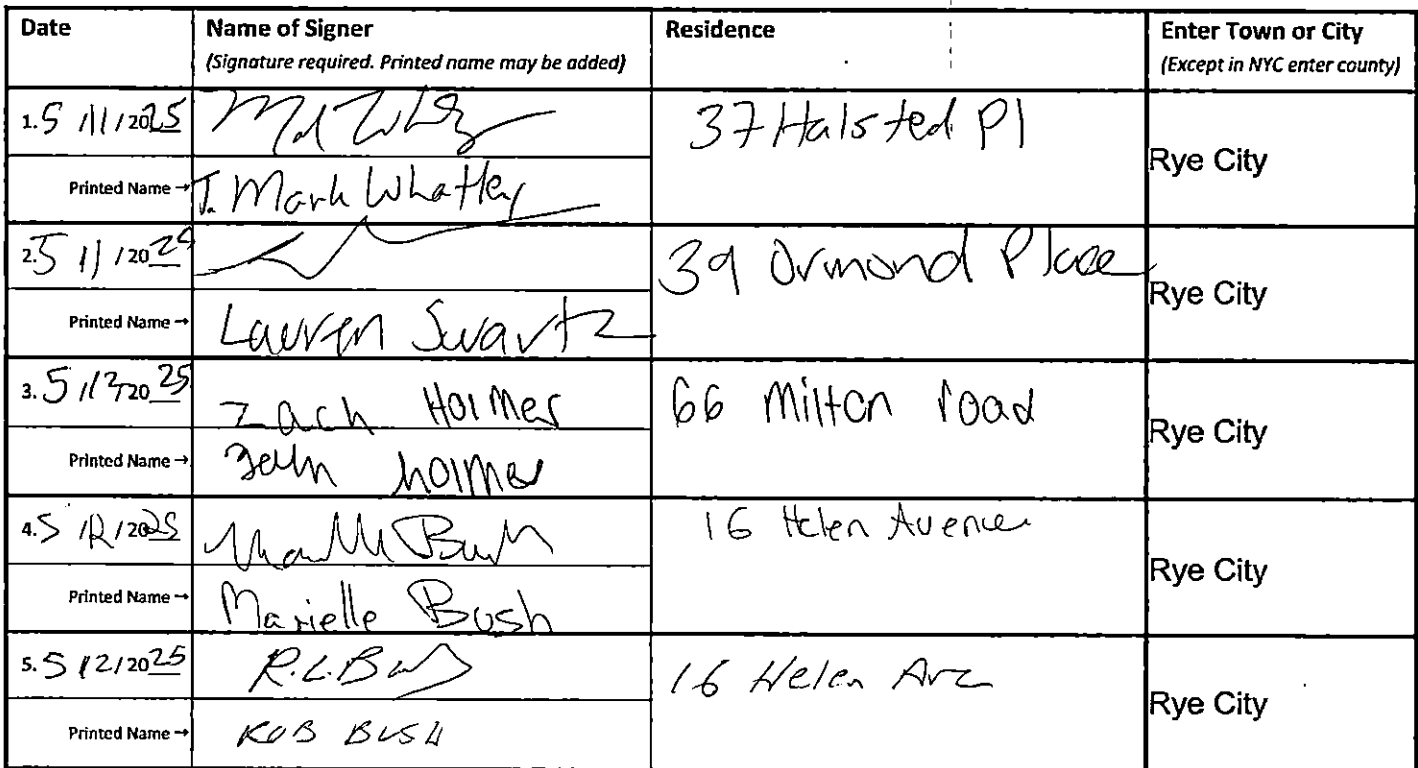 Date Name of Signer Residence Enter Town or City
(Signature required. Printed name may be added) (Except in NYC enter county)
1. 5 / 11 / 2025 37 Halsted Pl Rye City
Printed Name → J. Mark Whatley
2. 5 11 / 2025 39 Ormond Place Rye City
Printed Name → Lauren Swartz
3. 5 / 12 / 2025 Zach Holmes 66 Milton road Rye City
Printed Name → holmes
4. 5 / 12 / 2025 16 Helen Avenue Rye City
Printed Name → Marielle Bush
5. 5 / 12 / 2025 R.L. 16 Helen Ave Rye City
Printed Name → ROB BUSH